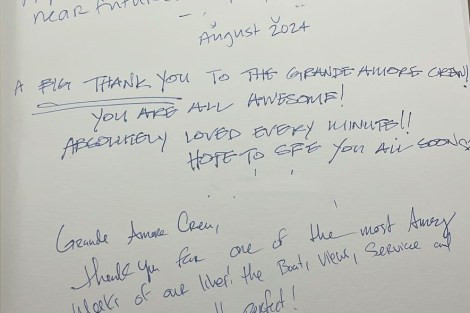 near future
August 2024
A BIG THANK YOU TO THE GRANDE AMORE CREW!
YOU ARE ALL AWESOME!
ABSOLUTELY LOVED EVERY MINUTE!!
HOPE TO SEE YOU ALL SOON
Grande Amore Crew,
Thank you for one of the most Amazing
Weeks of our lives! the Boat, Views, Service and
perfect!